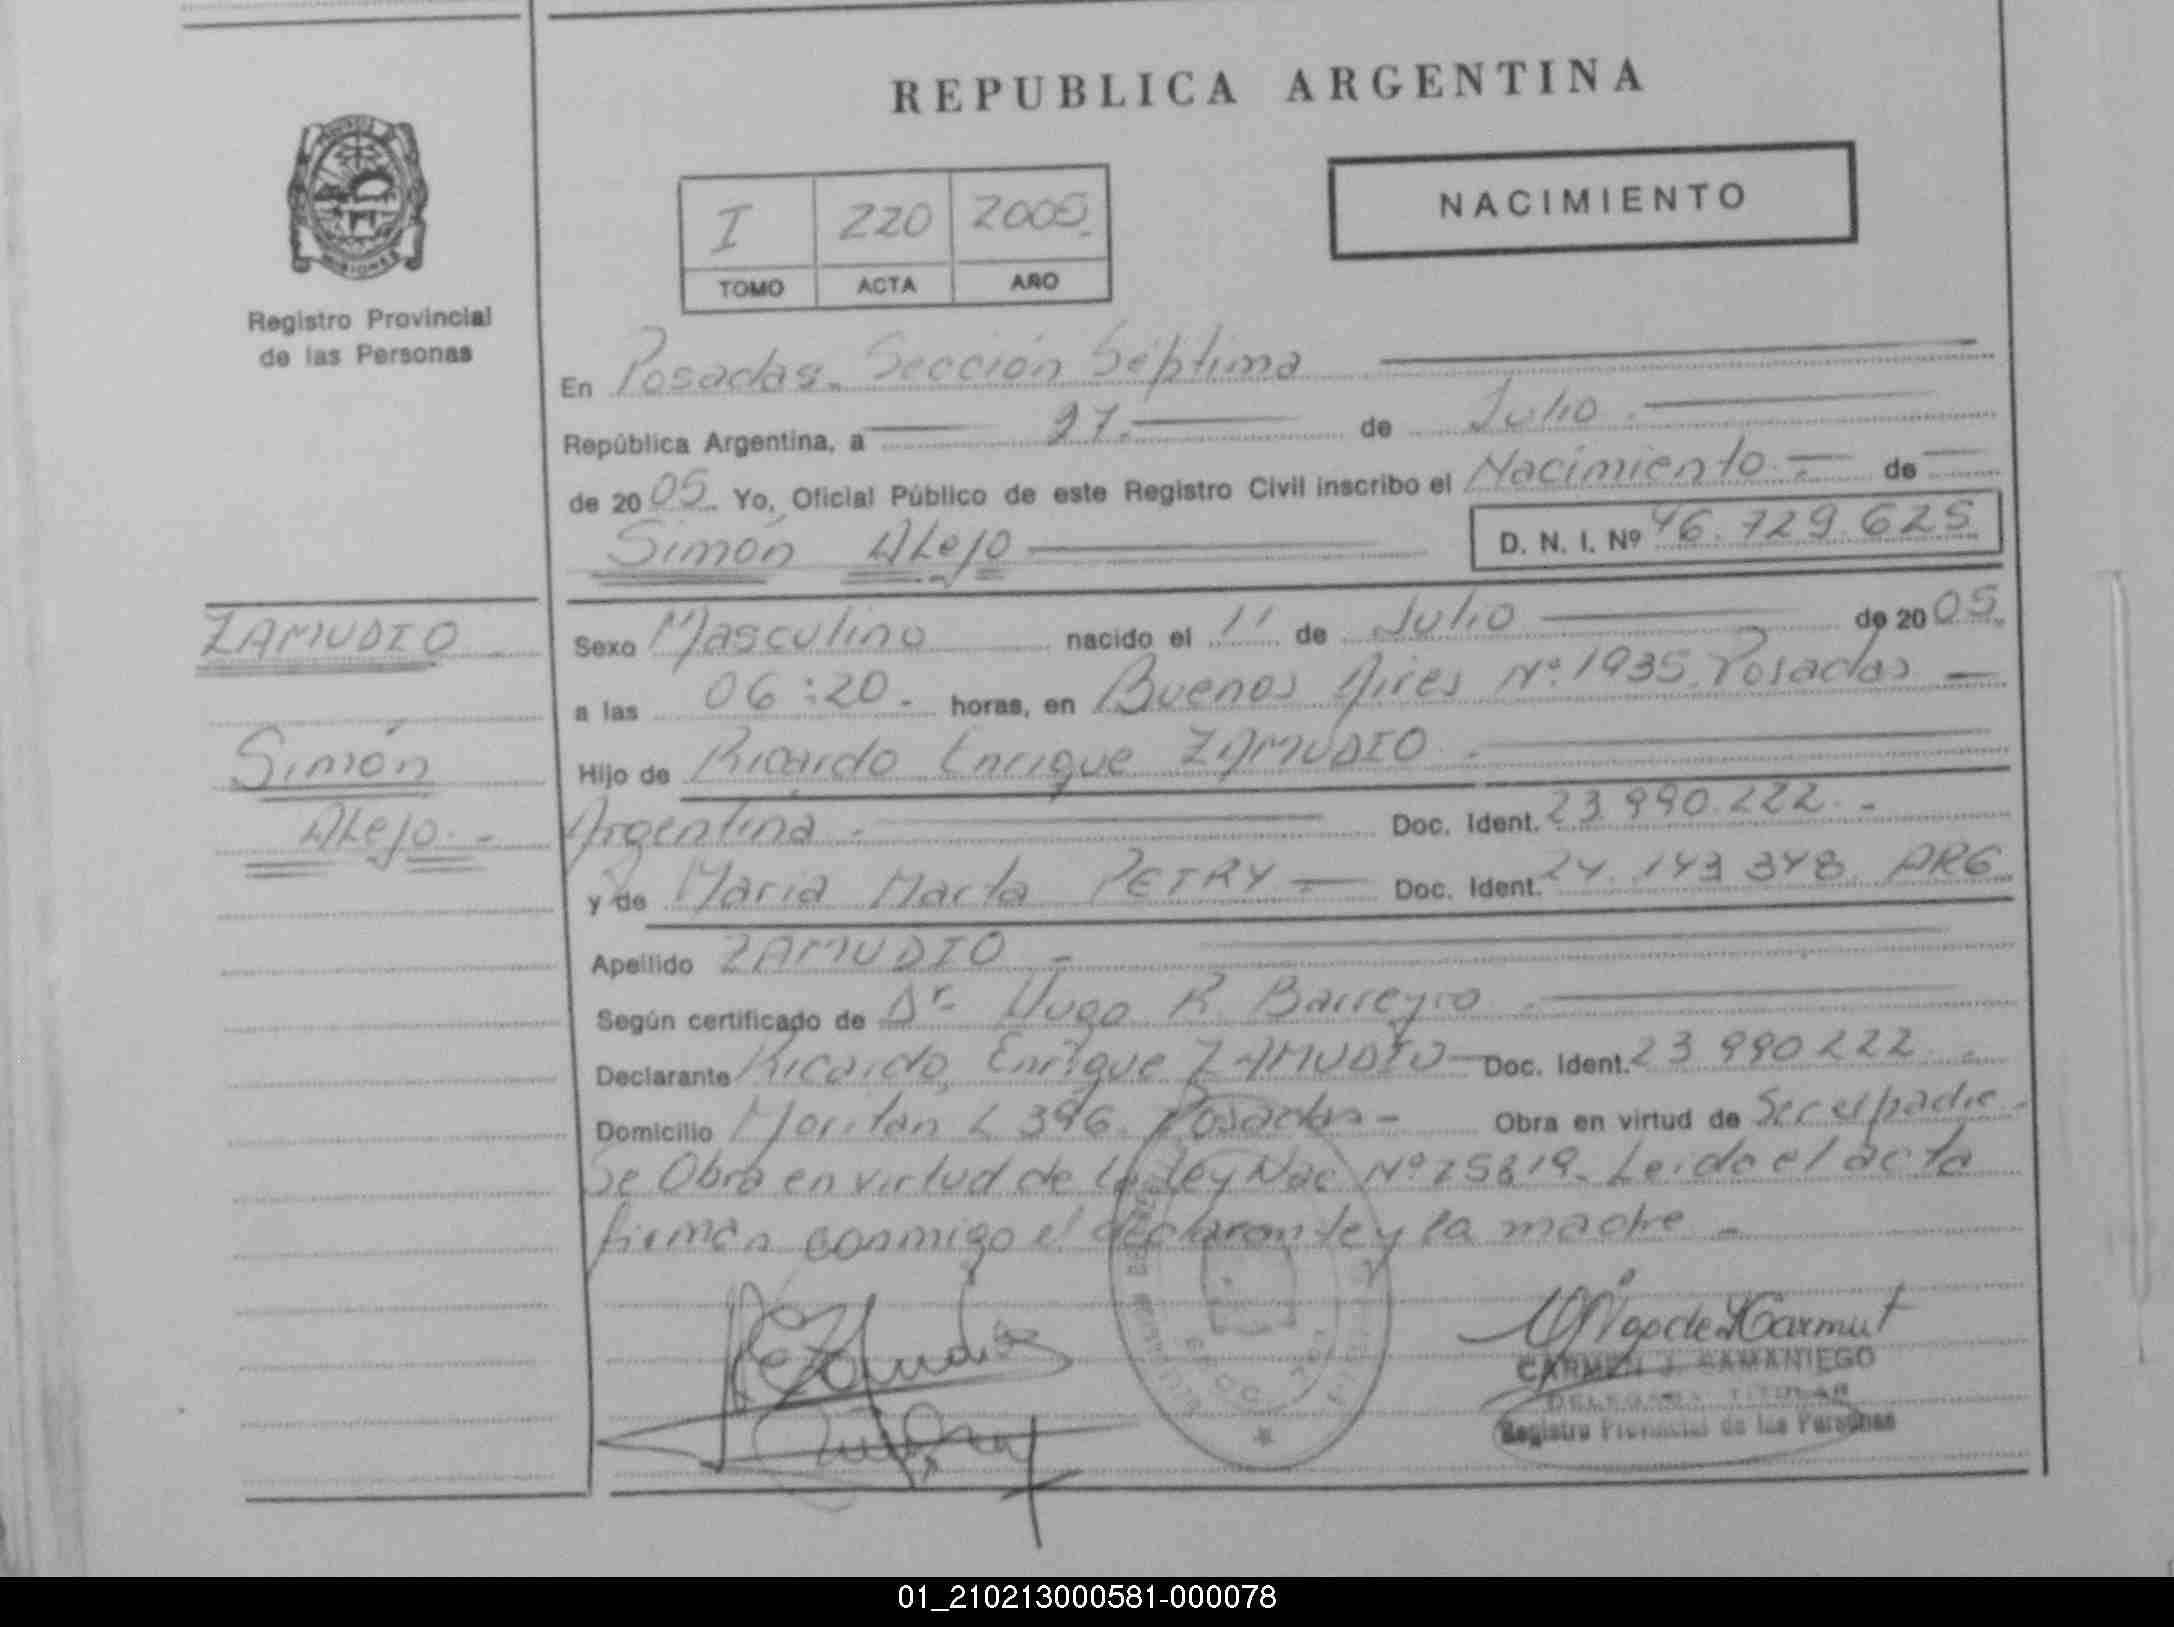 REPUBLICA ARGENTINA
NACIMIENTO
I 220 2005
TOMO ACTA AÑO
MISIONES
Registro Provincial
de las Personas
En Posadas. Sección Séptima
República Argentina, a 27. de Julio.
de 2005. Yo, Oficial Público de este Registro Civil inscribo el Nacimiento. de
Simón Alejo D. N. I. Nº 46.729.625
ZAMUDIO
Simón
Alejo.
Sexo Masculino nacido el 11 de Julio de 2005.
a las 06:20. horas, en Buenos Aires Nº 1935. Posadas
Hijo de Ricardo Enrique ZAMUDIO.
Argentina. Doc. Ident. 23.990.222.
y de Maria Marta PETRY Doc. Ident. 24.143.348. ARG.
Apellido ZAMUDIO
Según certificado de Dr. Hugo R. Barreyro.
Declarante Ricardo Enrique ZAMUDIO Doc. Ident. 23 990 222.
Domicilio 396. Posadas Obra en virtud de Ser el padre
Se Obra en virtud de la Ley Nac Nº 25819. Leida el acta
firman conmigo el declarante y la madre
CARMEN J. SAMANIEGO
DELEGADA TITULAR
Registro Provincial de las Personas
01_210213000581-000078